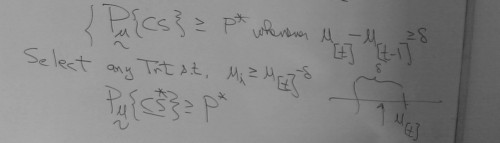 { P_μ{CS} ≥ P* whenever μ_[t] - μ_[t-1] ≥ δ
Select any Trt st. μ_i ≥ μ_[t] - δ
δ
P_μ{CS*} ≥ P*
μ_[t]